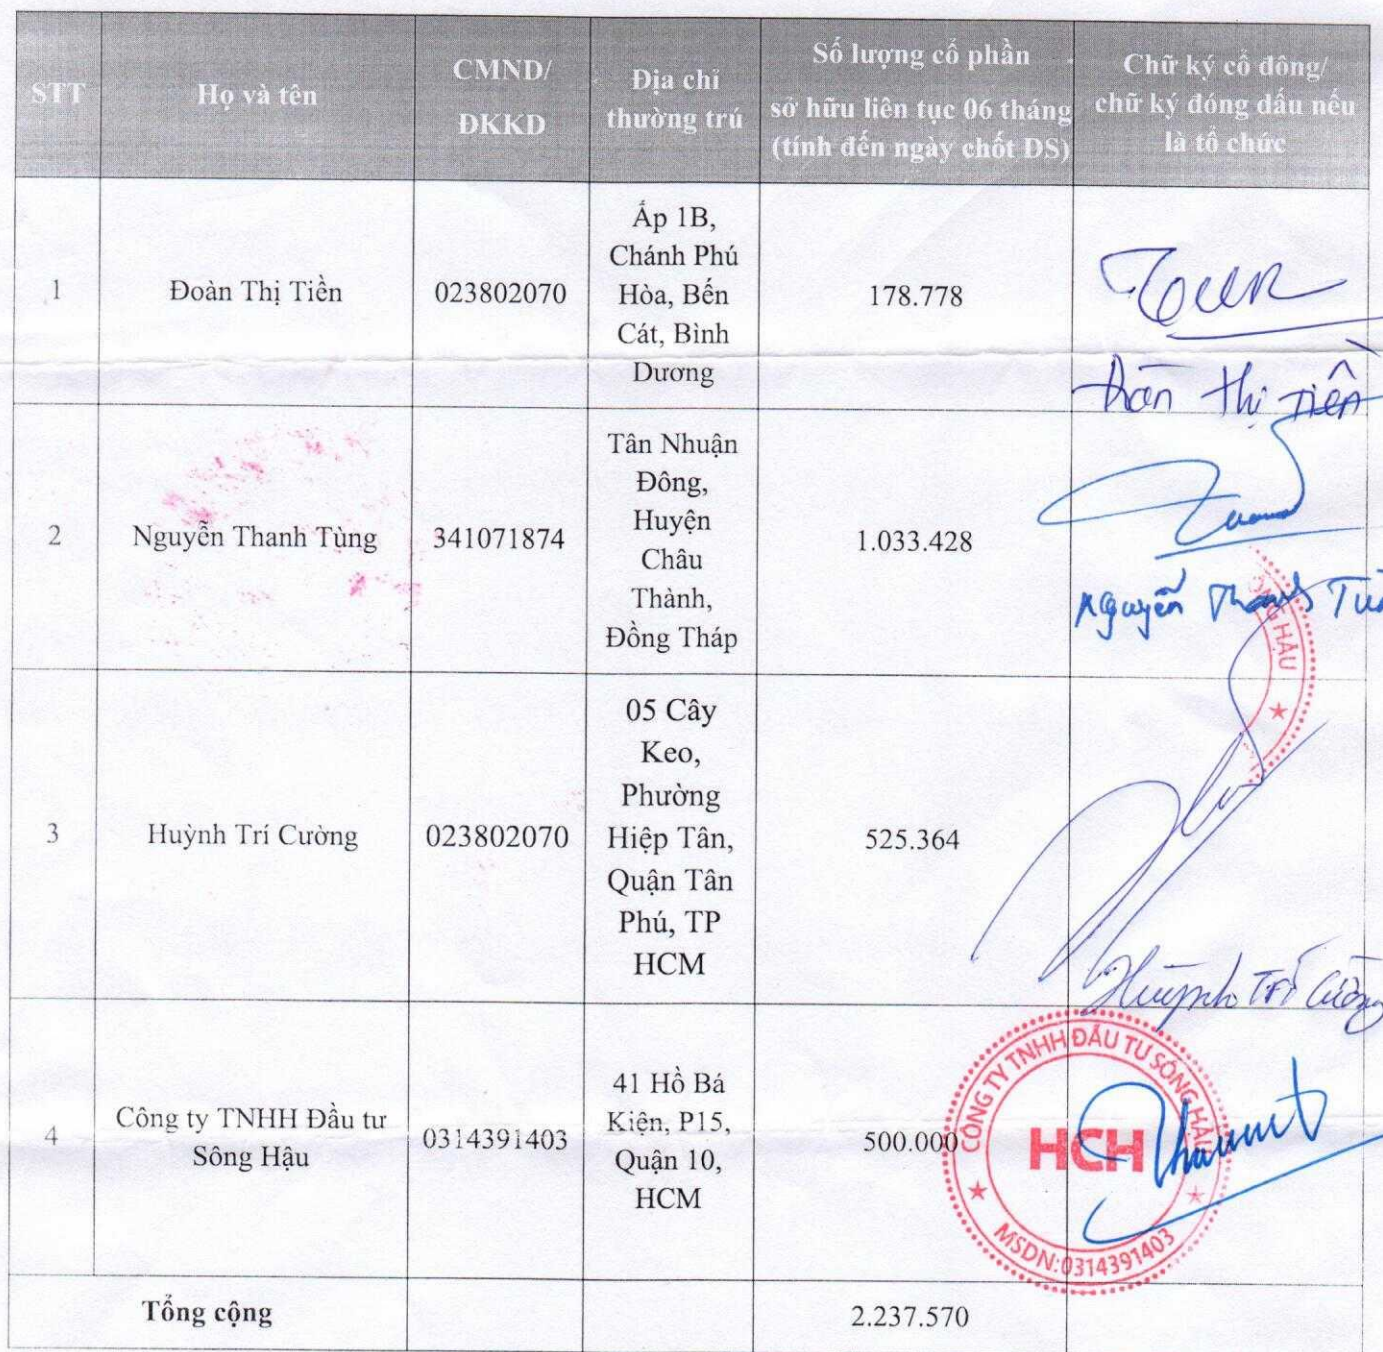 STT
Họ và tên
CMND/
ĐKKD
Địa chỉ
thường trú
Số lượng cổ phần
sở hữu liên tục 06 tháng
(tính đến ngày chốt DS)
Chữ ký cổ đông/
chữ ký đóng dấu nếu
là tổ chức
1
Đoàn Thị Tiền
023802070
Ấp 1B,
Chánh Phú
Hòa, Bến
Cát, Bình
Dương
178.778
Thị Tiền
2
Nguyễn Thanh Tùng
341071874
Tân Nhuận
Đông,
Huyện
Châu
Thành,
Đồng Tháp
1.033.428
Nguyễn Thanh
HẬU
3
Huỳnh Trí Cường
023802070
05 Cây
Keo,
Phường
Hiệp Tân,
Quận Tân
Phú, TP
HCM
525.364
Huỳnh Trí Cường
4
Công ty TNHH Đầu tư
Sông Hậu
0314391403
41 Hồ Bá
Kiện, P15,
Quận 10,
HCM
500.000
CÔNG TY TNHH ĐẦU TƯ SÔNG HẬU
HCH
MSDN:0314391403
Tổng cộng
2.237.570